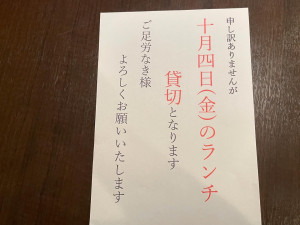 申し訳ありませんが
十月四日(金)のランチ
貸切となります
ご足労なき様
よろしくお願いいたします